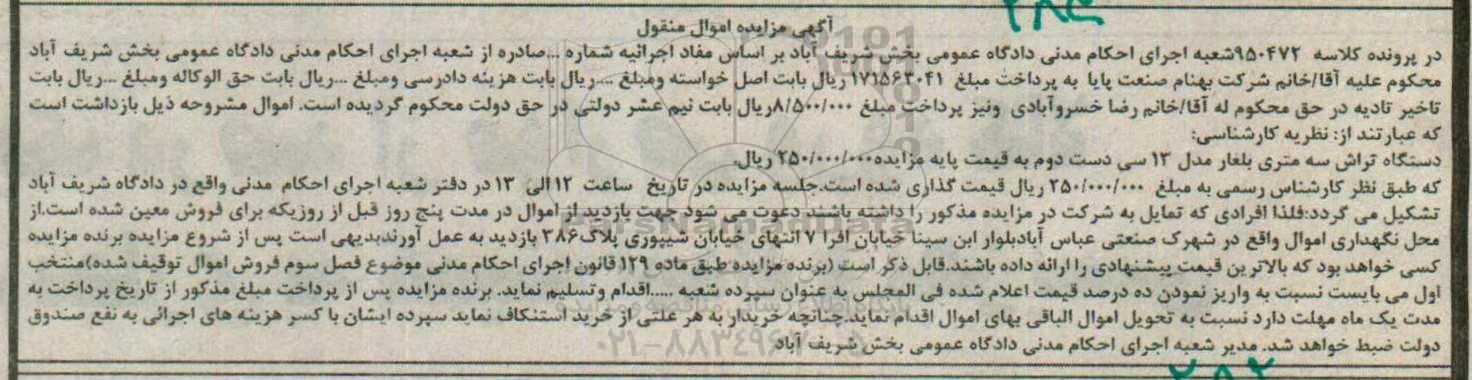 ۲۸۴
آگهی مزایده اموال منقول
در پرونده کلاسه ۹۵۰۴۷۲شعبه اجرای احکام مدنی دادگاه عمومی بخش شریف آباد بر اساس مفاد اجرائیه شماره ...صادره از شعبه اجرای احکام مدنی دادگاه عمومی بخش شریف آباد
محکوم علیه آقا/خانم شرکت بهنام صنعت پایا به پرداخت مبلغ ۱۷۱۵۶۳۰۴۱ ریال بابت اصل خواسته ومبلغ ....ریال بابت هزینه دادرسی ومبلغ ...ریال بابت حق الوکاله ومبلغ ...ریال بابت
تاخیر تادیه در حق محکوم له آقا/خانم رضا خسروآبادی ونیز پرداخت مبلغ ۸/۵۰۰/۰۰۰ریال بابت نیم عشر دولتی در حق دولت محکوم گردیده است. اموال مشروحه ذیل بازداشت است
که عبارتند از: نظریه کارشناسی:
دستگاه تراش سه متری بلغار مدل ۱۳ سی دست دوم به قیمت پایه مزایده۲۵۰/۰۰۰/۰۰۰ ریال.
که طبق نظر کارشناس رسمی به مبلغ ۲۵۰/۰۰۰/۰۰۰ ریال قیمت گذاری شده است.جلسه مزایده در تاریخ ساعت ۱۲ الی ۱۳ در دفتر شعبه اجرای احکام مدنی واقع در دادگاه شریف آباد
تشکیل می گردد:فلذا افرادی که تمایل به شرکت در مزایده مذکور را داشته باشند دعوت می شود جهت بازدید از اموال در مدت پنج روز قبل از روزیکه برای فروش معین شده است.از
محل نگهداری اموال واقع در شهرک صنعتی عباس آبادبلوار ابن سینا خیابان افرا ۷ انتهای خیابان شیپوری پلاک۳۸۶ بازدید به عمل آورندبدیهی است پس از شروع مزایده برنده مزایده
کسی خواهد بود که بالاترین قیمت پیشنهادی را ارائه داده باشند.قابل ذکر است (برنده مزایده طبق ماده ۱۲۹ قانون اجرای احکام مدنی موضوع فصل سوم فروش اموال توقیف شده)منتخب
اول می بایست نسبت به واریز نمودن ده درصد قیمت اعلام شده فی المجلس به عنوان سپرده شعبه .....اقدام وتسلیم نماید. برنده مزایده پس از پرداخت مبلغ مذکور از تاریخ پرداخت به
مدت یک ماه مهلت دارد نسبت به تحویل اموال الباقی بهای اموال اقدام نماید.چنانچه خریدار به هر علتی از خرید استنکاف نماید سپرده ایشان با کسر هزینه های اجرائی به نفع صندوق
دولت ضبط خواهد شد. مدیر شعبه اجرای احکام مدنی دادگاه عمومی بخش شریف آباد